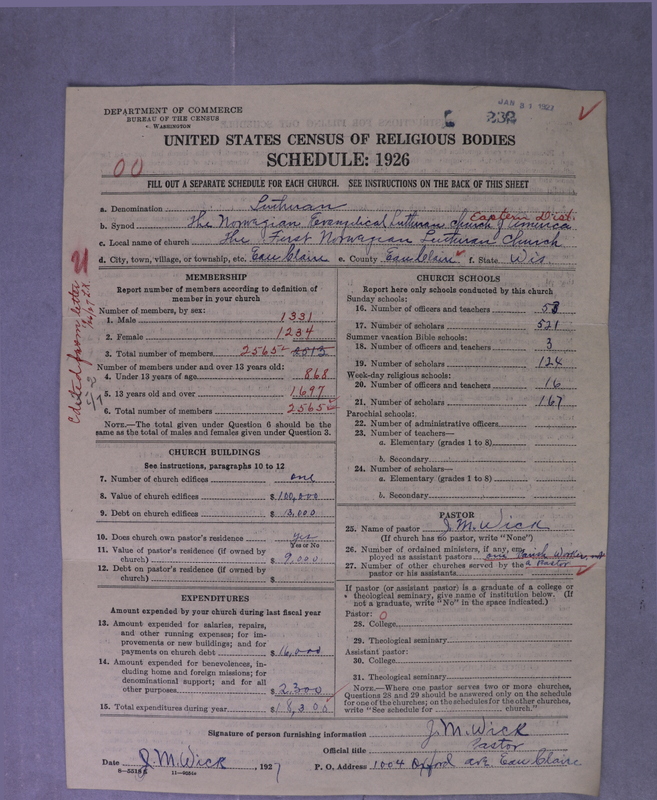 JAN 31 1927
232
DEPARTMENT OF COMMERCE
BUREAU OF THE CENSUS
WASHINGTON
UNITED STATES CENSUS OF RELIGIOUS BODIES
SCHEDULE: 1926
00
FILL OUT A SEPARATE SCHEDULE FOR EACH CHURCH. SEE INSTRUCTIONS ON THE BACK OF THIS SHEET
a. Denomination Lutheran
Eastern Dist.
b. Synod The Norwegian Evangelical Lutheran Church of America
c. Local name of church The First Norwegian Lutheran Church
d. City, town, village, or township, etc. Eau Claire e. County Eau Claire f. State Wis.
Edited from letter
MEMBERSHIP
Report number of members according to definition of
member in your church
Number of members, by sex:
1. Male 1331
2. Female 1234
3. Total number of members 2565 2013
Number of members under and over 13 years old:
4. Under 13 years of age 868
5. 13 years old and over 1697
6. Total number of members 2565
NOTE.—The total given under Question 6 should be the
same as the total of males and females given under Question 3.
CHURCH BUILDINGS
See instructions, paragraphs 10 to 12
7. Number of church edifices one
8. Value of church edifices $100,000
9. Debt on church edifices $13,000
10. Does church own pastor's residence yes
Yes or No
11. Value of pastor's residence (if owned by
church) $9,000
12. Debt on pastor's residence (if owned by
church) $
EXPENDITURES
Amount expended by your church during last fiscal year
13. Amount expended for salaries, repairs,
and other running expenses; for im-
provements or new buildings; and for
payments on church debt $16,000
14. Amount expended for benevolences, in-
cluding home and foreign missions; for
denominational support; and for all
other purposes $2,300
15. Total expenditures during year $18,300
CHURCH SCHOOLS
Report here only schools conducted by this church
Sunday schools:
16. Number of officers and teachers 53
17. Number of scholars 521
Summer vacation Bible schools:
18. Number of officers and teachers 3
19. Number of scholars 124
Week-day religious schools:
20. Number of officers and teachers 16
21. Number of scholars 167
Parochial schools:
22. Number of administrative officers
23. Number of teachers—
a. Elementary (grades 1 to 8)
b. Secondary
24. Number of scholars—
a. Elementary (grades 1 to 8)
b. Secondary
PASTOR
25. Name of pastor J. M. Wick
(If church has no pastor, write "None")
26. Number of ordained ministers, if any, em-
ployed as assistant pastors one Parish Worker, not
27. Number of other churches served by the a Pastor
pastor or his assistants
If pastor (or assistant pastor) is a graduate of a college or
theological seminary, give name of institution below. (If
not a graduate, write "No" in the space indicated.)
Pastor: 0
28. College
29. Theological seminary
Assistant pastor:
30. College
31. Theological seminary
NOTE.—Where one pastor serves two or more churches,
Questions 28 and 29 should be answered only on the schedule
for one of the churches; on the schedules for the other churches,
write "See schedule for church."
Signature of person furnishing information J. M. Wick
Official title Pastor
Date J. M. Wick, 1927 P. O. Address 1004 Oxford ave Eau Claire